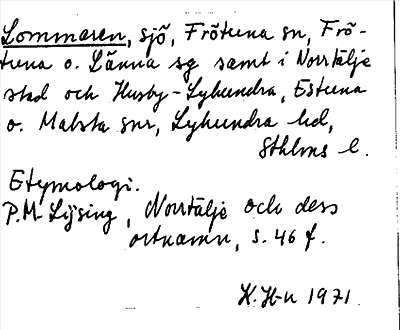 Lommaren, sjö, Frötuna sn, Frö-
tuna o. Länna sg samt i Norrtälje
stad och Husby-Lyhundra, Estuna
o. Malsta snr, Lyhundra hd,
Sthlms l.
Etymologi.
P.M. Lijsing, Norrtälje och dess
ortnamn, s. 46 f.
H. H-n 1971.